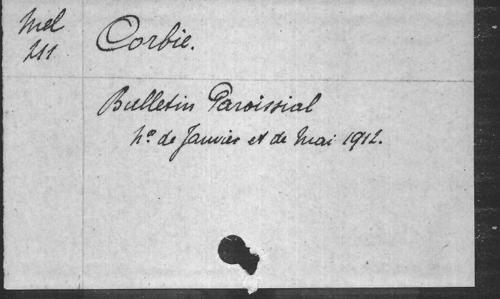 Mel
211
Corbie.
Bulletin Paroissial
No. de Janvier et de Mai 1912.